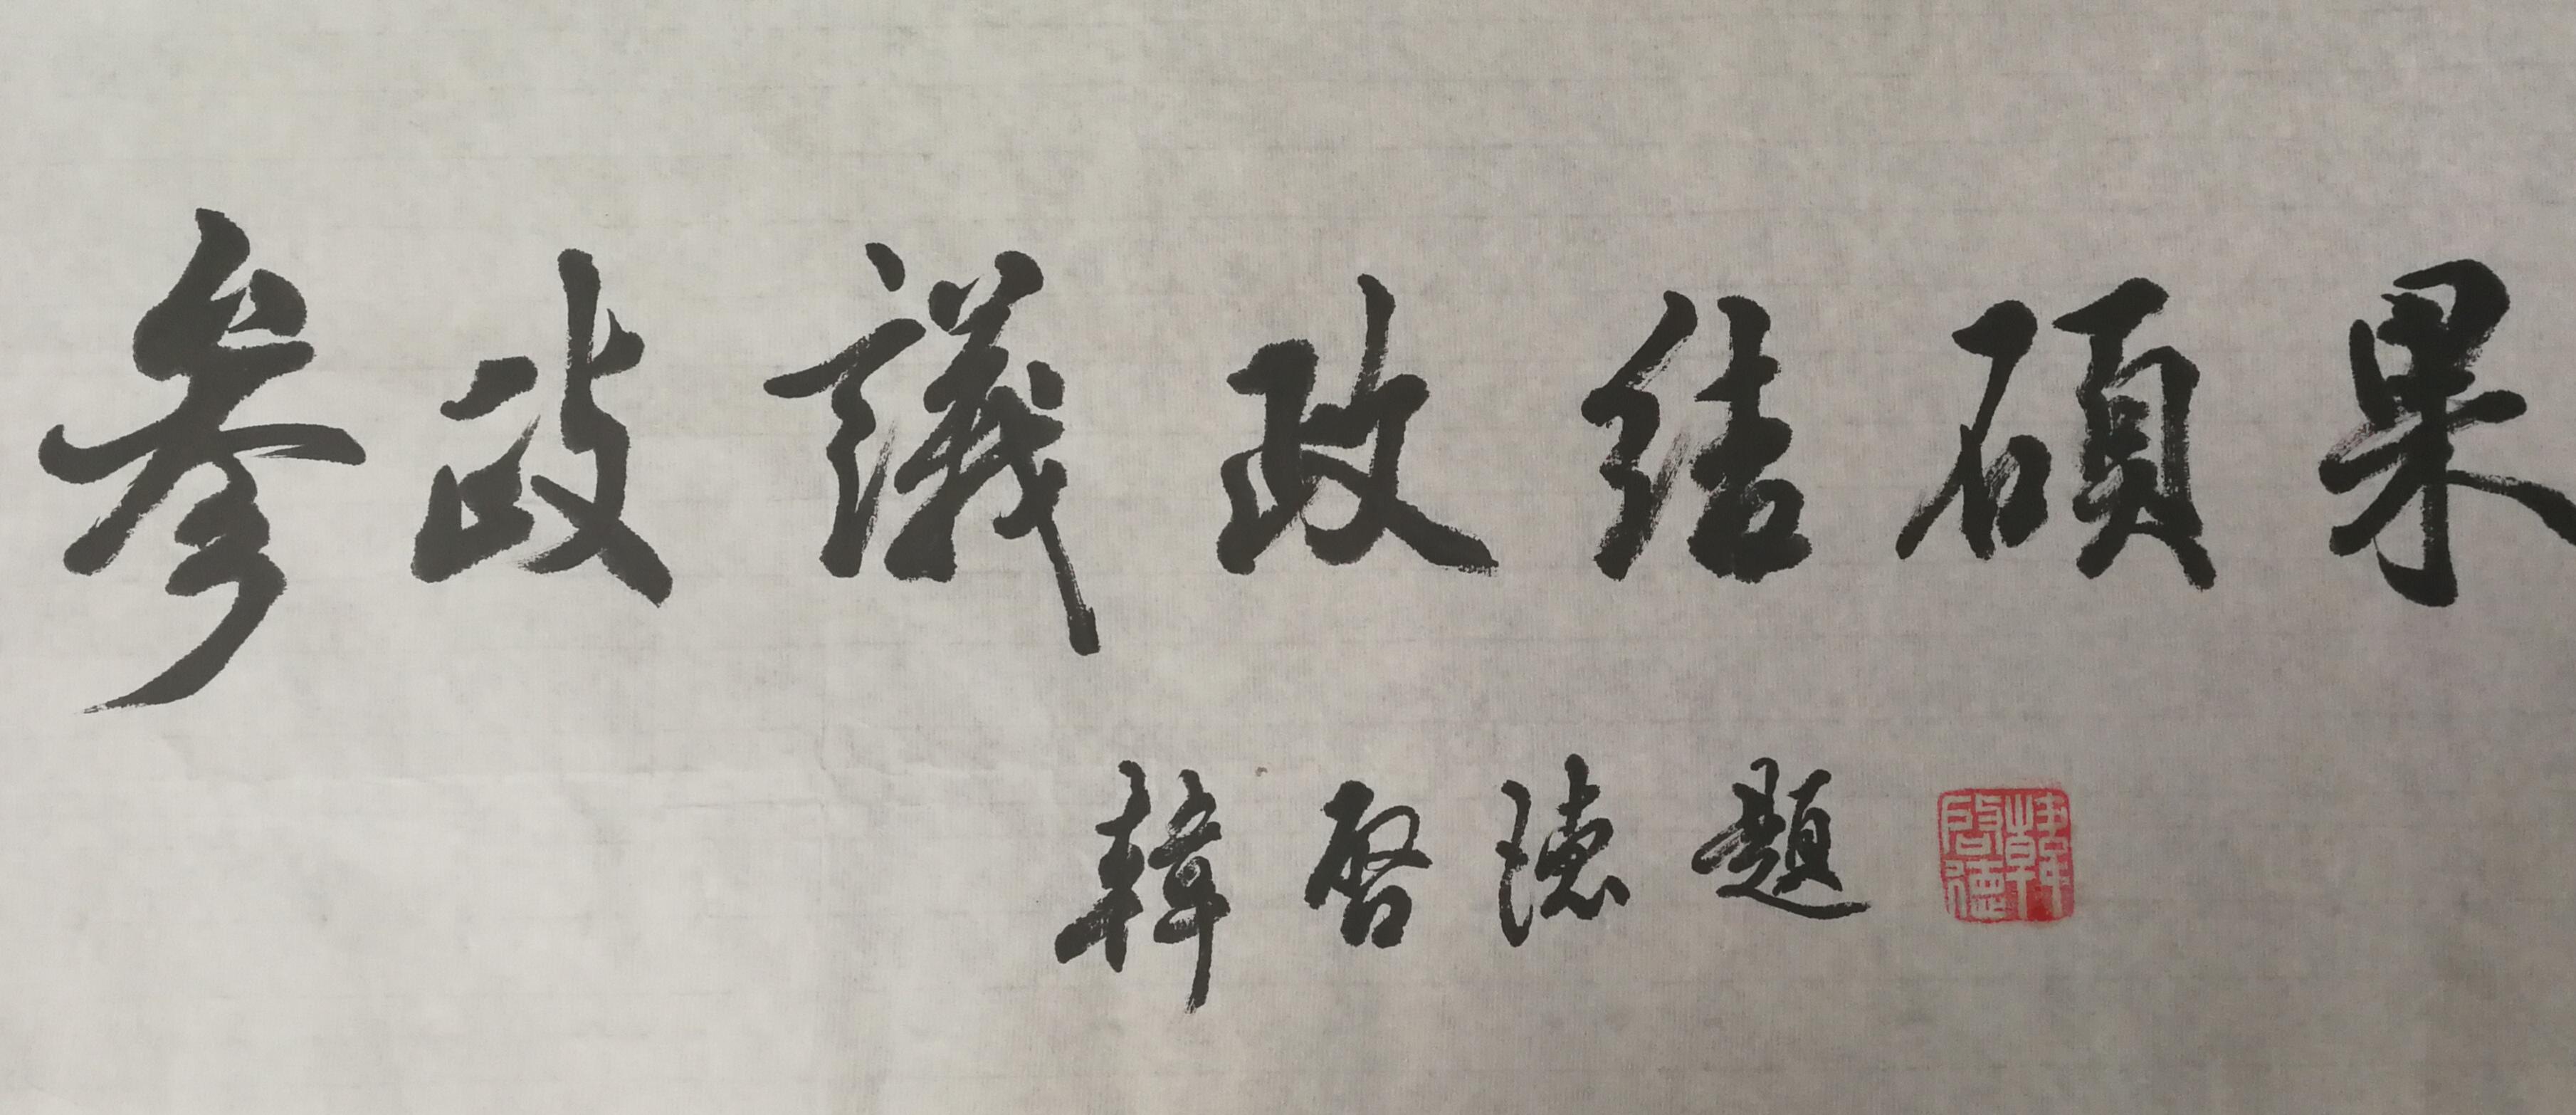 參政議政结碩果
韓啓德題
韓啓德